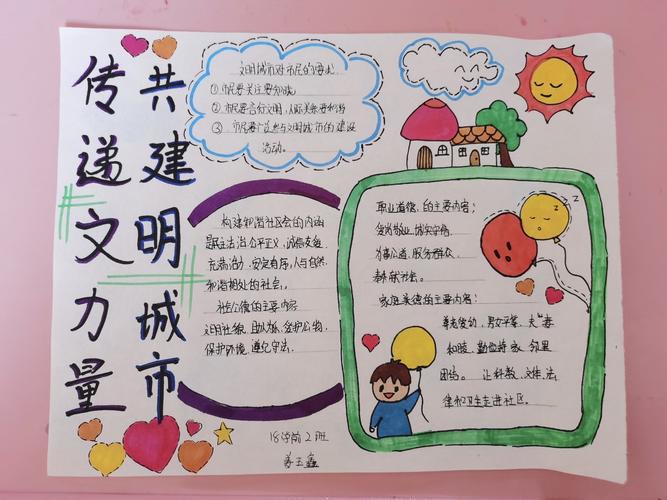 共建明城市
传递文力量
文明城市对市民的要求
①市民要关注要知晓
②市民要言行文明,人际关系要和谐
③市民要广泛参与文明城市的建设
活动。
构建和谐社区会的内涵
是民主法治公平正义,诚信友爱
充满活力,安定有序,人与自然
和谐相处的社会。
社会公德的主要内容
文明社貌、助人为乐、爱护公物,
保护环境、遵纪守法。
职业道德,的主要内容;
爱岗敬业、诚实守信
办事公道、服务群众
奉献社会。
家庭美德的主要内容:
尊老爱幼,男女平等、夫妻
和睦,勤俭持家、邻里
团结。让科教、文体、法
律和卫生走进社区。
z
z
18学前2班